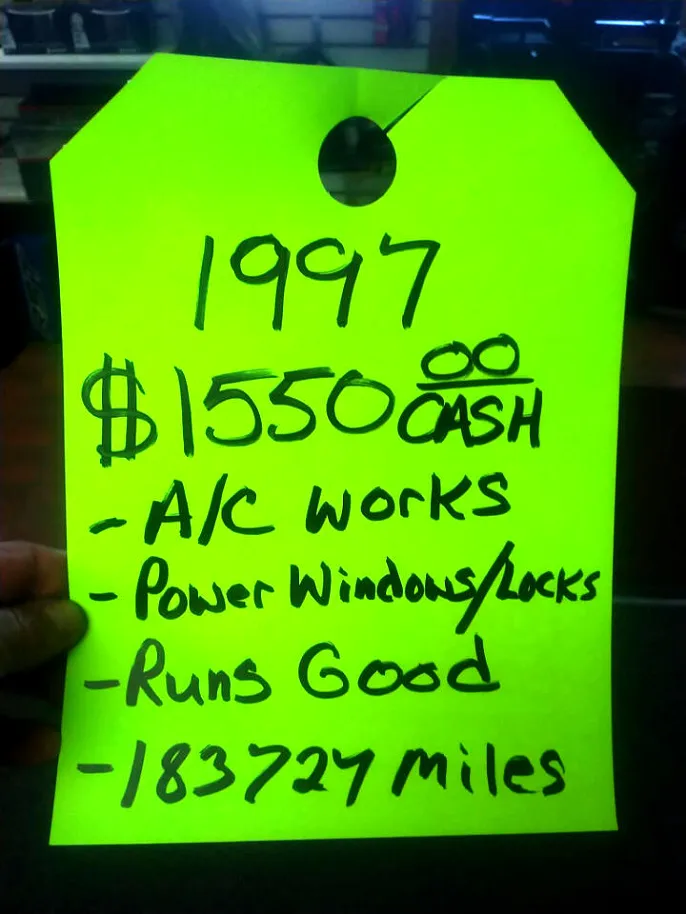 1997
$1550 00 CASH
- A/C works
- Power Windows/Locks
- Runs Good
- 183724 miles